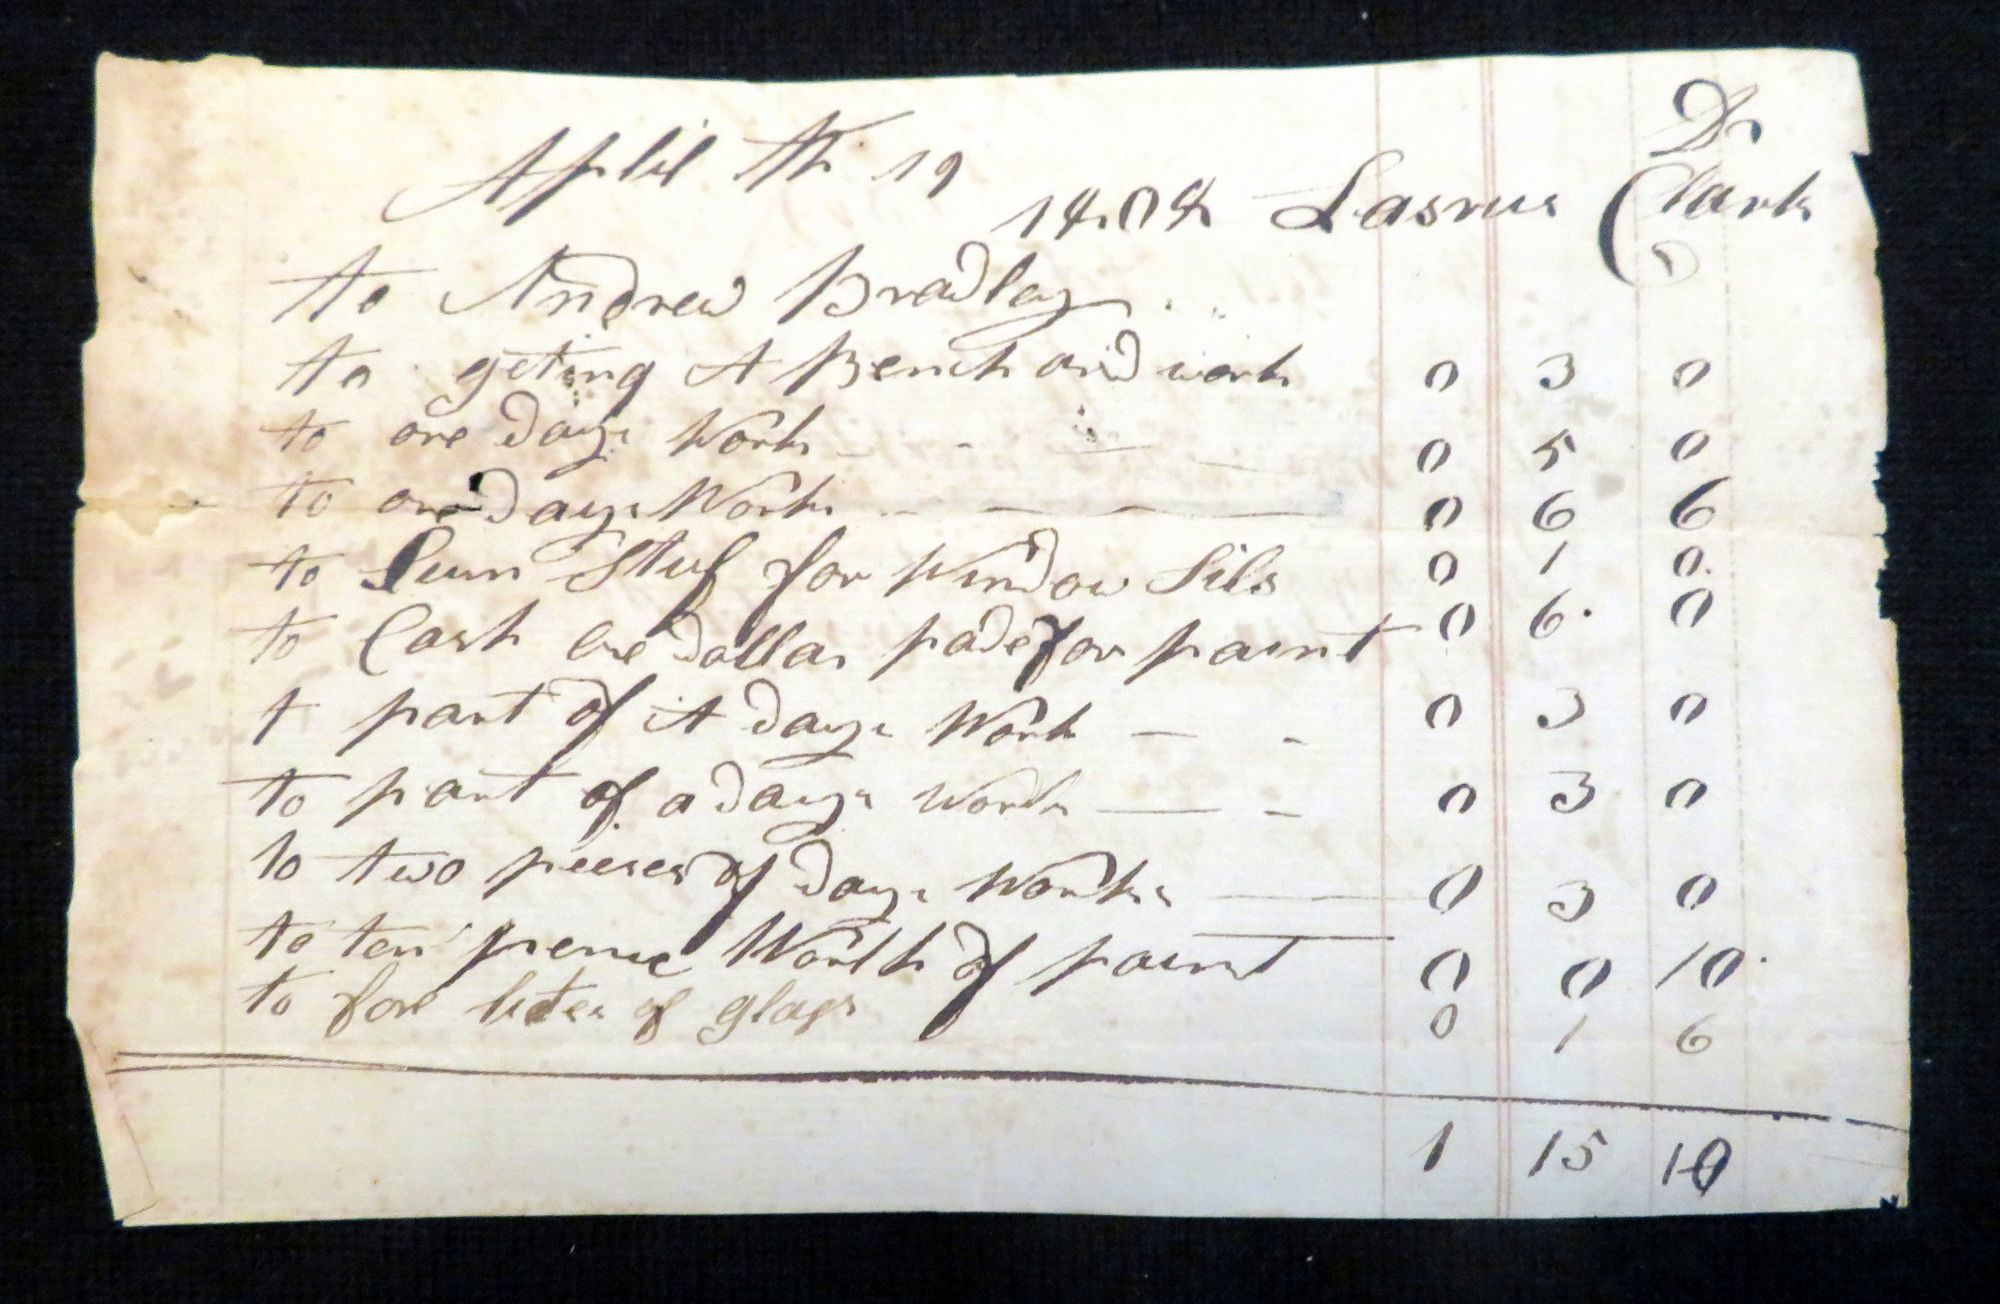 Aplil th 19 1808 Lasrus Clark Dr
to Andrew Bradley
to geting A Bench and work 0 3 0
to one Days Work 0 5 0
to one Days Work 0 6 6
to Sum Stuf for Window Sils 0 1 0
to Cash one Dollar pade for paint 0 6 0
t part of A Days Work 0 3 0
to part of a Days Work 0 3 0
to two peeses of Days Works 0 3 0
to ten penne Worth of paint 0 0 10
to fore lites of glass 0 1 6
1 15 10